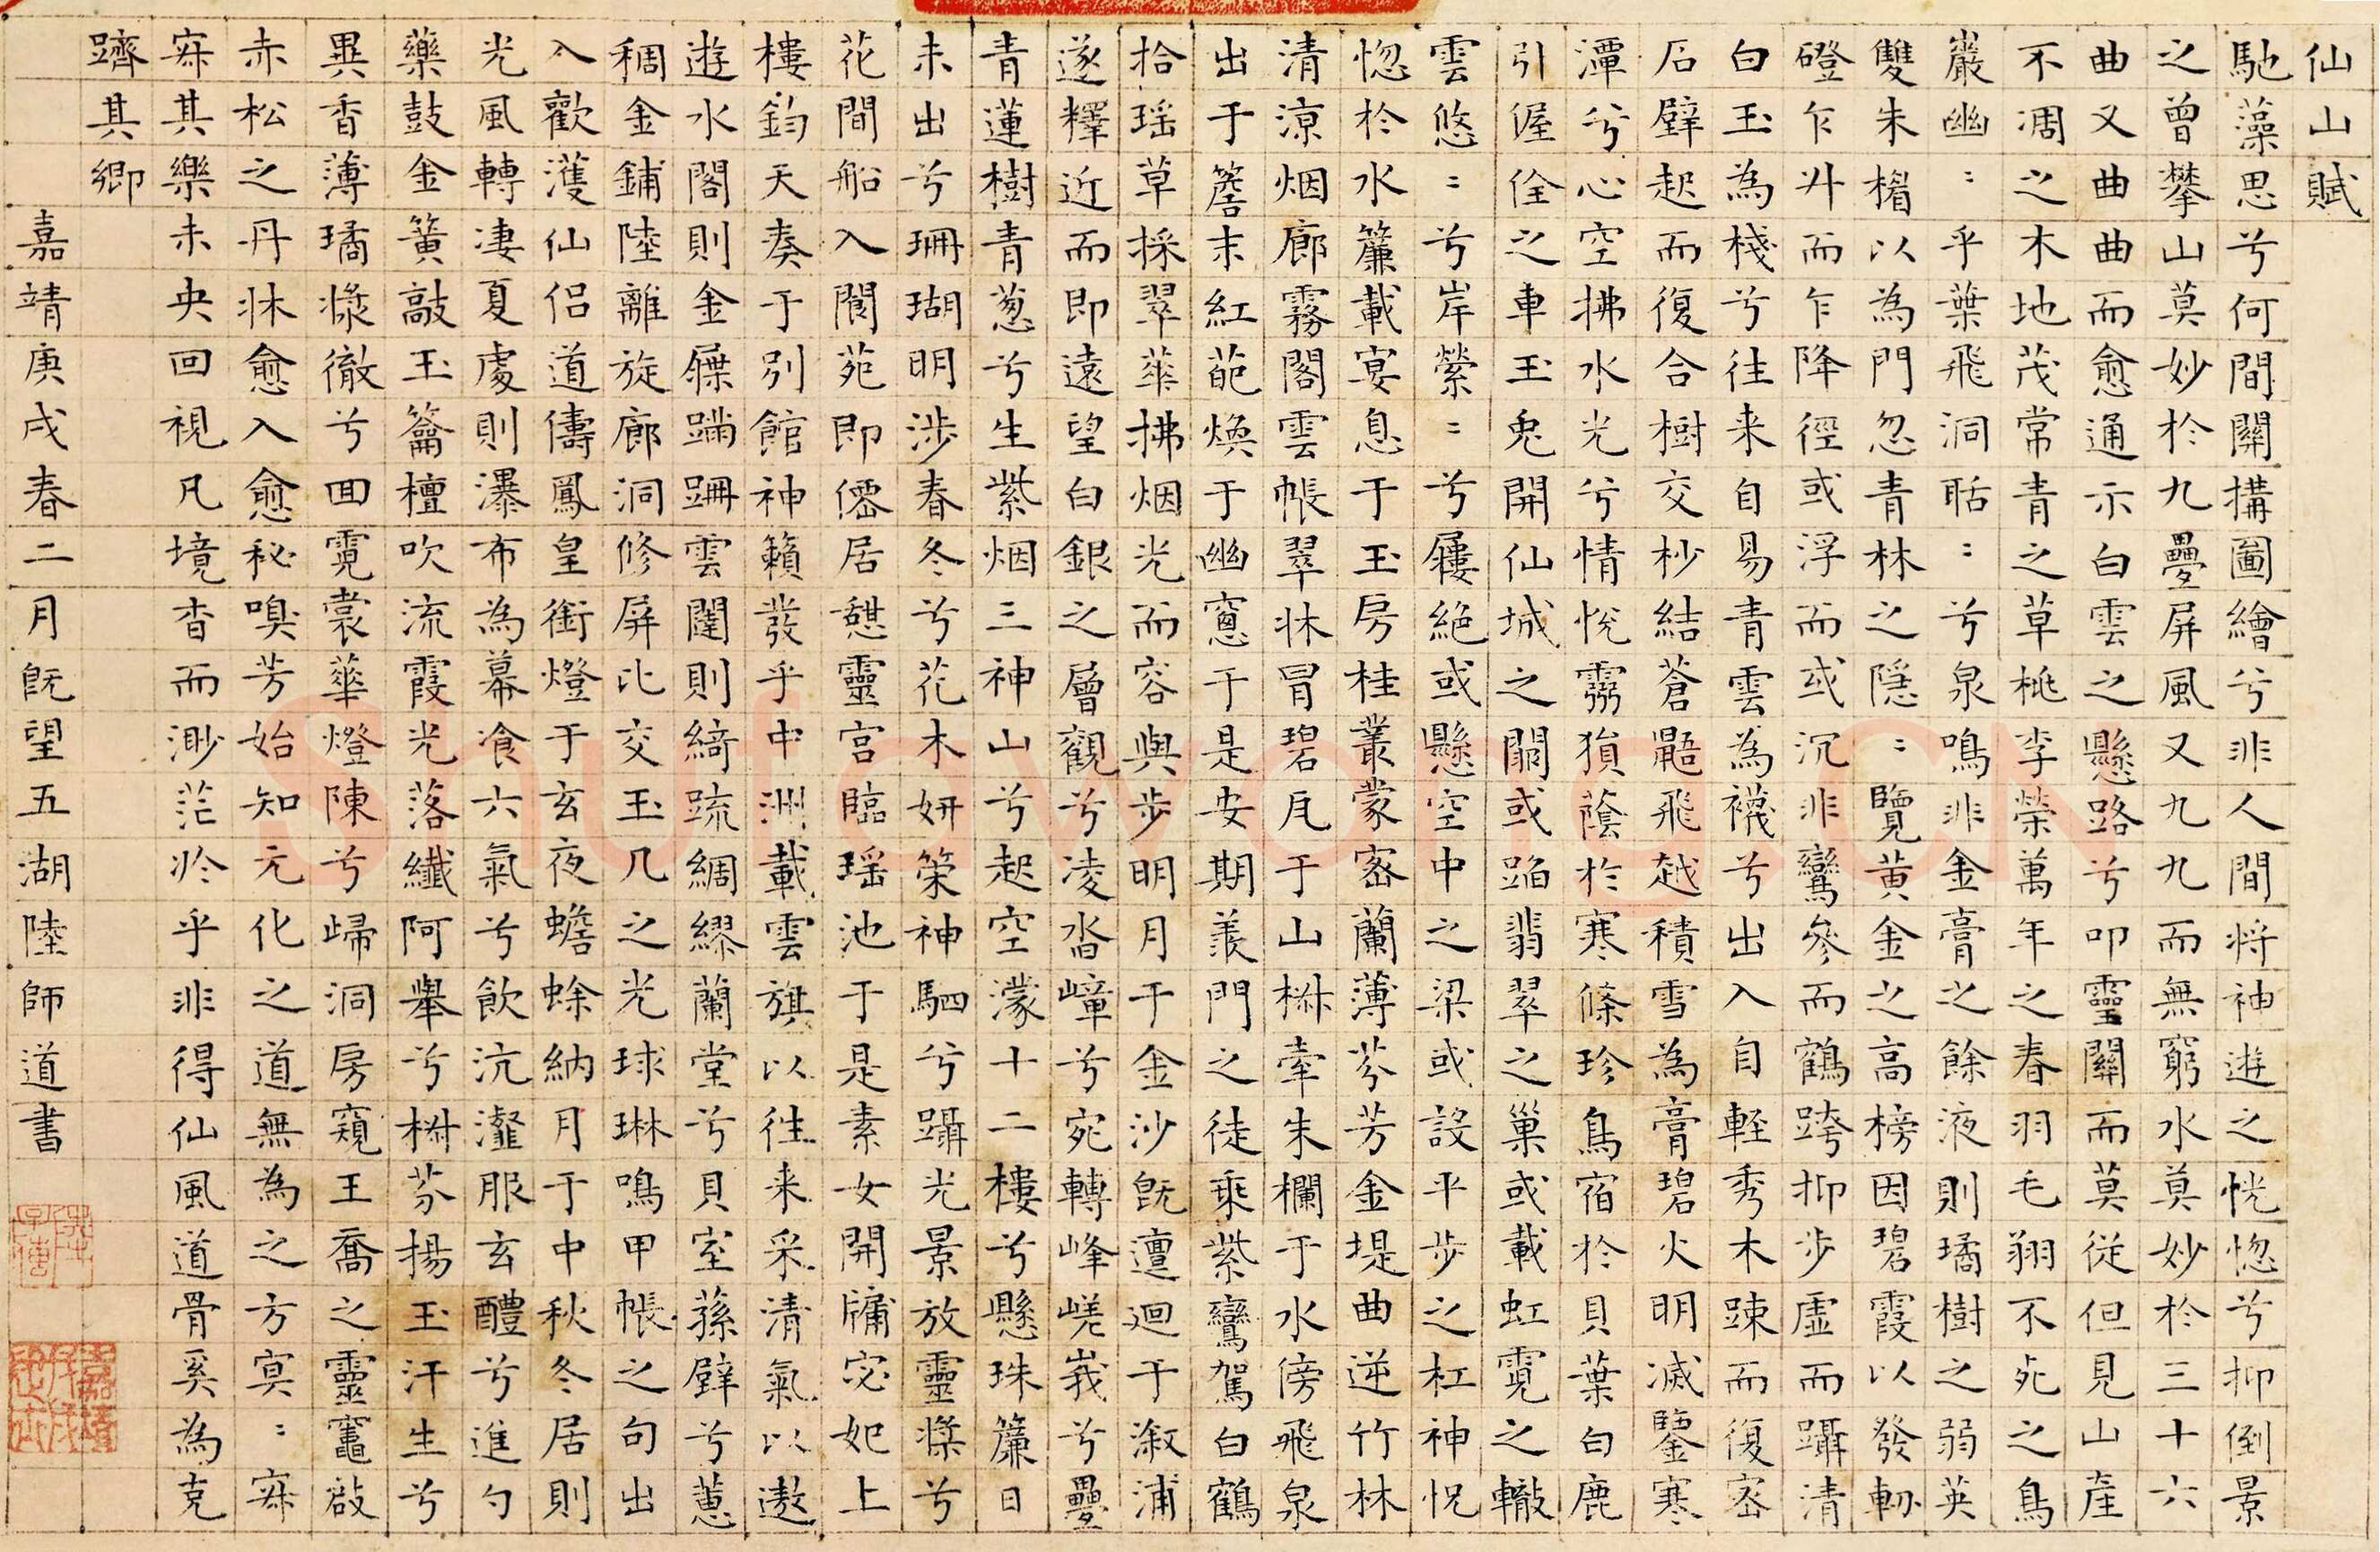 仙山賦
馳藻思兮何間關搆圖繪兮非人間將神遊之恍惚兮抑倒景
之曾攀山莫妙於九疊屏風又九九而無窮水莫妙於三十六
曲又曲曲而愈通示白雲之懸路兮叩靈關而莫從但見山產
不凋之木地茂常青之草桃李榮萬年之春羽毛翔不死之鳥
巖幽〻乎葉飛洞聒〻兮泉鳴非金膏之餘液則璚樹之弱英
雙朱楣以為門忽青林之隱〻覽黃金之高榜因碧霞以發軔
磴乍升而乍降徑或浮而或沉非鸞參而鶴跨抑步虛而躡清
白玉為棧兮往来自易青雲為襪兮出入自輕秀木踈而復密
石壁起而復合樹交杪結蒼鼯飛越積雪為膏碧火明滅鑒寒
潭兮心空拂水光兮情悅霧損蔭於寒條珍鳥宿於貝葉白鹿
引偓佺之車玉兎開仙城之關或蹈翡翠之巢或載虹霓之轍
雲悠〻兮岸縈〻兮屨絕或懸空中之梁或設平步之杠神怳
惚於水簾載宴息于玉房桂叢蒙密蘭薄芬芳金堤曲逆竹林
清涼烟廊霧閣雲帳翠牀冒碧瓦于山椒牽朱欄于水傍飛泉
出于簷末紅葩煥于幽窻于是安期羨門之徒乘紫鸞駕白鶴
拾瑤草採翠華拂烟光而容與步明月于金沙既邅迴于漵浦
遂釋近而即遠望白銀之層觀兮凌沓嶂兮宛轉峰嵯峩兮疊
青蓮樹青葱兮生紫烟三神山兮起空濛十二樓兮懸珠簾日
未出兮珊瑚明涉春冬兮花木妍策神駟兮躡光景放靈槳兮
花間船入閬苑即僊居憩靈宮臨瑤池于是素女開牖宓妃上
樓鈞天奏于別館神籟發乎中洲載雲旗以往来采清氣以遨
遊水閣則金屧蹒跚雲闥則綺疏綢繆蘭堂兮貝室蓀壁兮蕙
稠金鋪陸離旋廊洞修屏比交玉几之光球琳鳴甲帳之句出
入歡濩仙侣道儔鳳皇銜燈于玄夜蟾蜍納月于中秋冬居則
光風轉淒夏處則瀑布為幕飡六氣兮飲沆瀣服玄醴兮進勺
藥鼓金簧敲玉籥檀吹流霞光落纖阿舉兮椒芬揚玉汗生兮
異香薄璚漿徹兮回霓裳華燈陳兮歸洞房窺王喬之靈竈啟
赤松之丹牀愈入愈秘嗅芳始知元化之道無為之方冥〻寐
寐其樂未央回視凡境杳而渺茫於乎非得仙風道骨奚為克
躋其鄉
嘉靖庚戌春二月既望五湖陸師道書